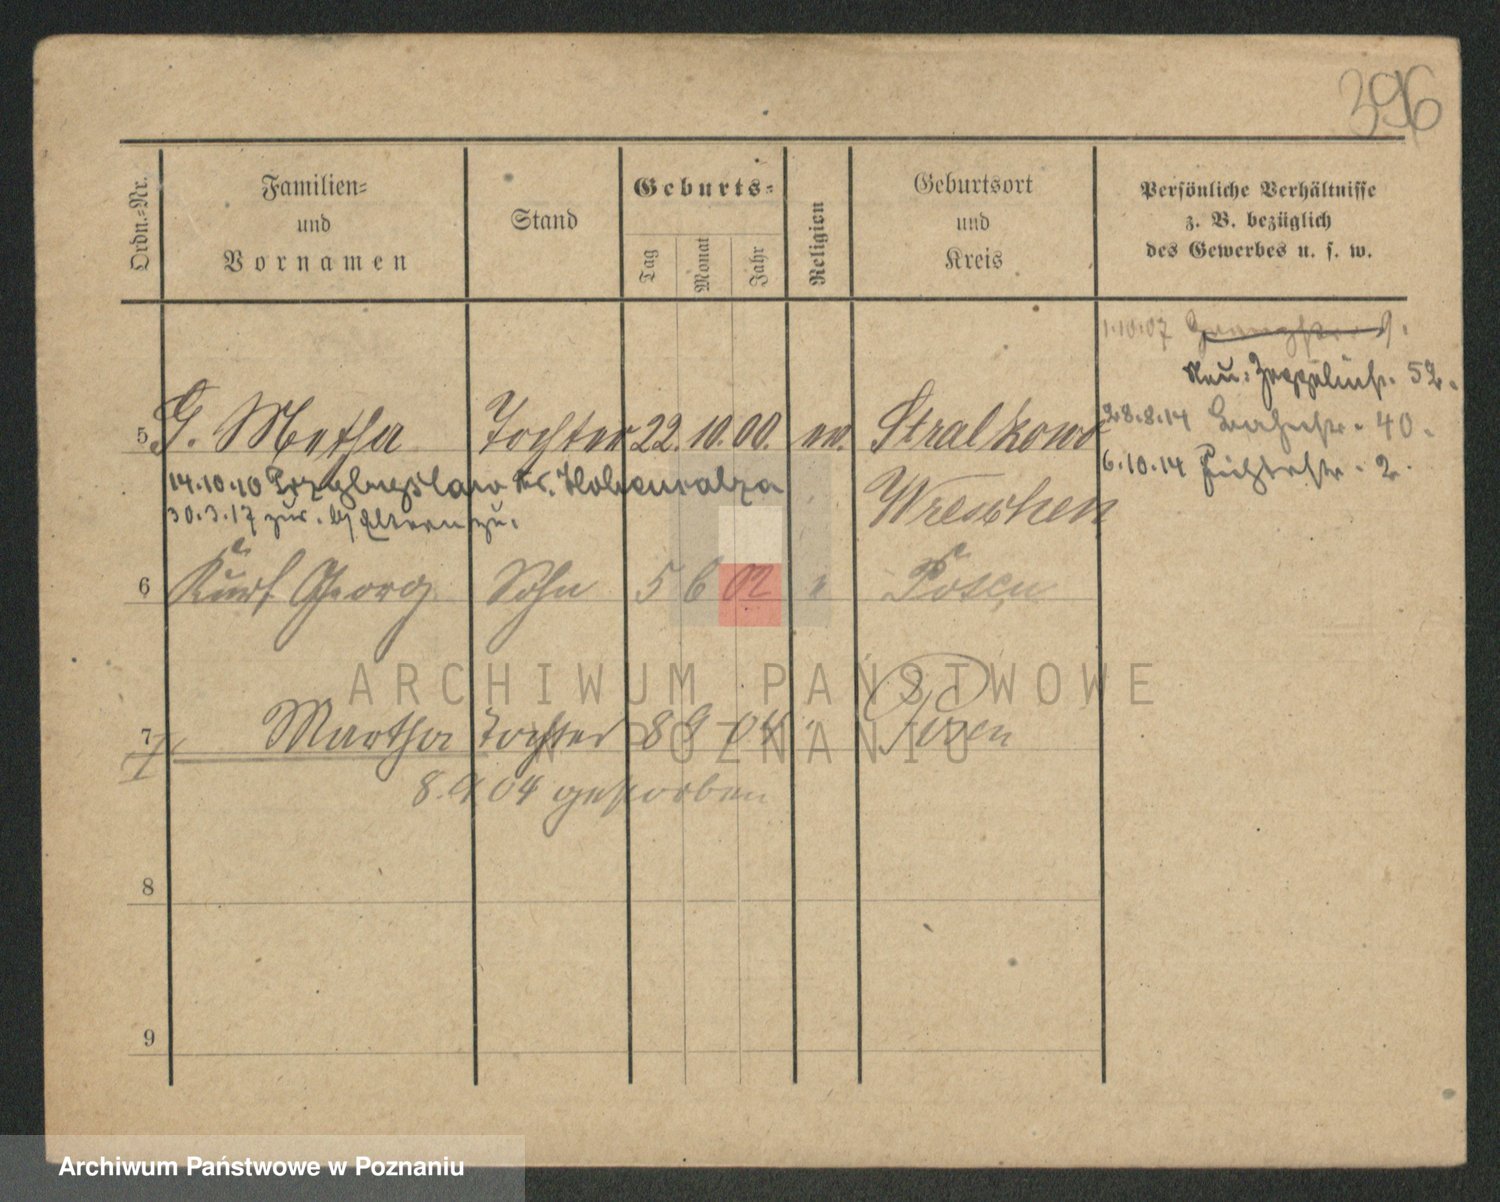 396
Ordn.-Nr.
Familien-
und
Vornamen
Stand
Geburts-
Tag
Monat
Jahr
Religion
Geburtsort
und
Kreis
Persönliche Verhältnisse
z. B. bezüglich
des Gewerbes u. s. w.
1.10.07
Neu: Zeppelinstr. 52.
28.8.14 Bahnstr. 40.
6.10.14 Fichtestr. 2.
5. G. Metha Tochter 22. 10. 00. ev. Stralkowo
14.10.10 Kr. Hohensalza
Wreschen
30.3.17 zur. b/ Eltern zu.
6 Kurt Georg Sohn 5 6 02 " Posen
7 Martha Tochter 8 9 04 " Posen
8.9.04 gestorben
8
9
ARCHIWUM PAŃSTWOWE
W POZNANIU
Archiwum Państwowe w Poznaniu